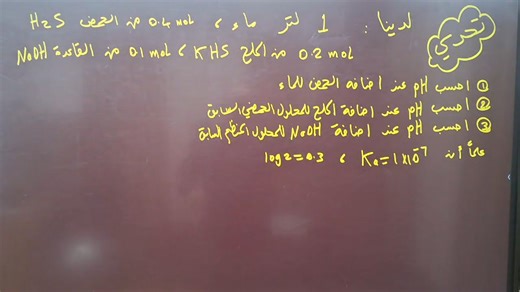 تحدي
لدينا : 1 لتر ماء ، 0.4 mol من الحمض H2S
0.2 mol من الملح KHS ، 0.1 mol من القاعدة NaOH
① احسب pH عند اضافة الحمض للماء
② احسب pH عند اضافة الملح للمحلول الحمضي السابق
③ احسب pH عند اضافة NaOH للمحلول المنظم السابق
علماً أن Ka = 1x10-7 ، log 2 = 0.3